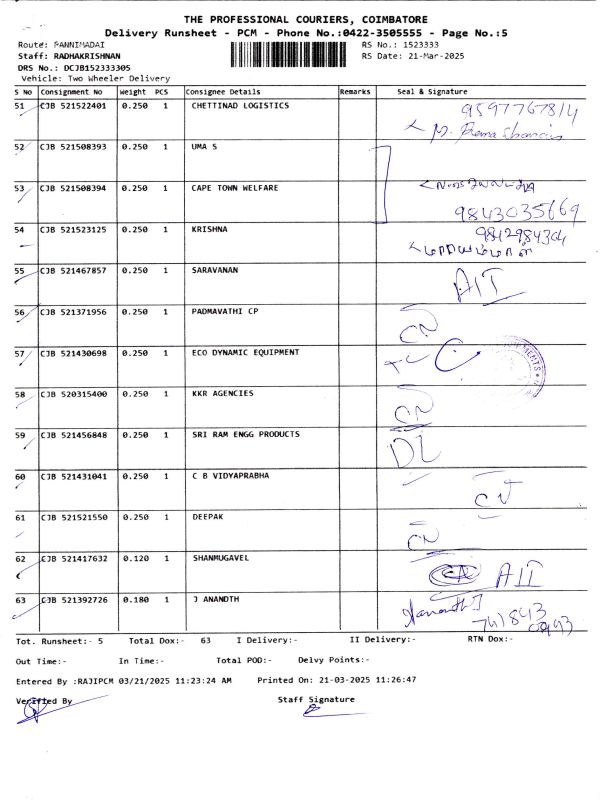 THE PROFESSIONAL COURIERS, COIMBATORE
Delivery Runsheet - PCM - Phone No.:0422-3505555 - Page No.:5
Route: PANNIMADAI RS No.: 1523333
Staff: RADHAKRISHNAN RS Date: 21-Mar-2025
DRS No.: DCJB152333305
Vehicle: Two Wheeler Delivery
S No Consignment No Weight PCS Consignee Details Remarks Seal & Signature
51 CJB 521522401 0.250 1 CHETTINAD LOGISTICS 9597767814
52 CJB 521508393 0.250 1 UMA S
53 CJB 521508394 0.250 1 CAPE TOWN WELFARE
9843035669
54 CJB 521523125 0.250 1 KRISHNA 9842984304
55 CJB 521467857 0.250 1 SARAVANAN AIT
56 CJB 521371956 0.250 1 PADMAVATHI CP CN
57 CJB 521430698 0.250 1 ECO DYNAMIC EQUIPMENT
58 CJB 520315400 0.250 1 KKR AGENCIES CN
59 CJB 521456848 0.250 1 SRI RAM ENGG PRODUCTS DL
60 CJB 521431041 0.250 1 C B VIDYAPRABHA
61 CJB 521521550 0.250 1 DEEPAK CN
62 CJB 521417632 0.120 1 SHANMUGAVEL AIT
63 CJB 521392726 0.180 1 J ANANDTH Anandth J
Tot. Runsheet:- 5 Total Dox:- 63 I Delivery:- II Delivery:- RTN Dox:-
Out Time:- In Time:- Total POD:- Delvy Points:-
Entered By :RAJIPCM 03/21/2025 11:23:24 AM Printed On: 21-03-2025 11:26:47
Verified By Staff Signature